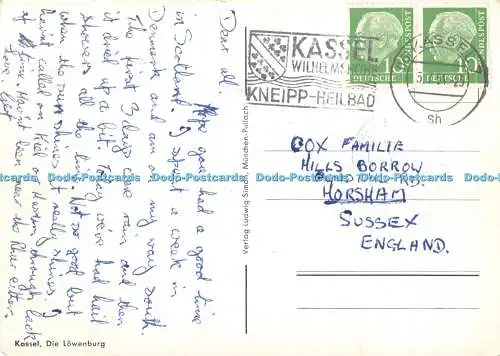 Dear all. Hope you've had a good time
in Scotland? I spent a week in
Denmark and am on my way south.
The first 3 days were rain and then
it dried up a bit. Today we've had hail
showers all the time. Not so good but
when the sun shines it really shines.
Havnt called on Kiel or Hamburg though. Lack
of time. Havnt been near the Rhine either.
Love,
Kassel, Die Löwenburg
Verlag Ludwig Simon, München-Pullach
KASSEL
WILHELMSHÖHE
KNEIPP-HEILBAD
KASSEL
sh
DEUTSCHE BUNDESPOST
10
DEUTSCHE BUNDESPOST
10
COX FAMILIE
HILLS BORROW
RD.
HORSHAM
SUSSEX
ENGLAND.
Dodo-Postcards Dodo-Postcards Dodo-Postcards Dodo-Postcards Dodo-Postcards